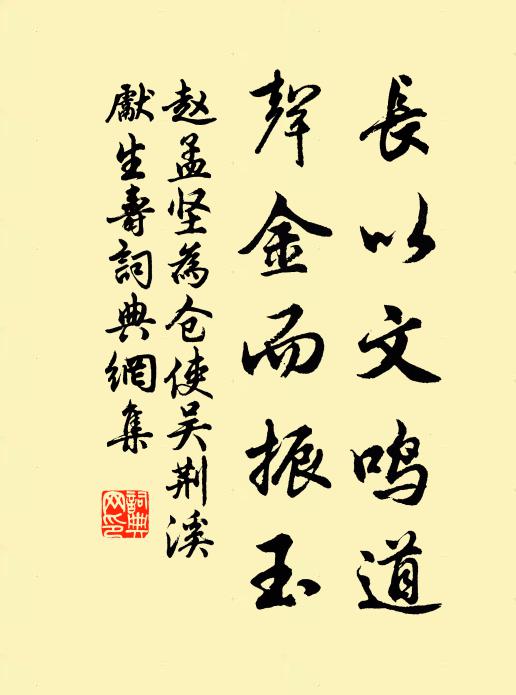 長以文鸣道
聲金而振玉
赵孟坚為仓使吴荆溪
獻生壽詞典網集
詞典网印